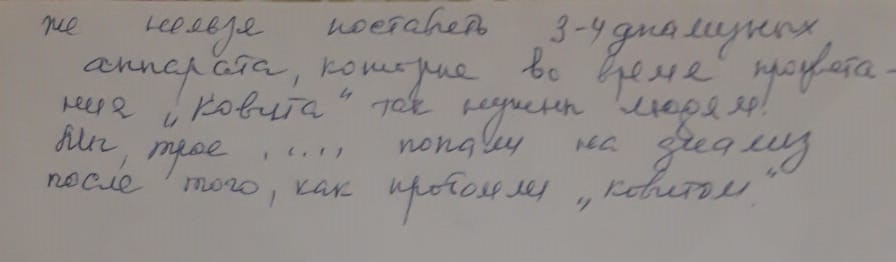 же нельзя поставить 3-4 диализных
аппарата, которые во время процвета-
ния „Ковита" так нужны людям!
Мы, трое, ...., попали на диализ
после того, как проболели „ковитом."